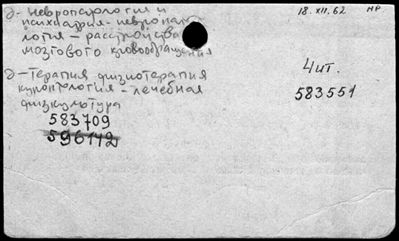 д- Невропатология и
психиатрия - невропато-
логия - расстройства
мозгового кровообращения
д- Терапия физиотерапия
курортология - лечебная
физкультура
583709
596142
18. XII. 62
НР
4 ит.
583551